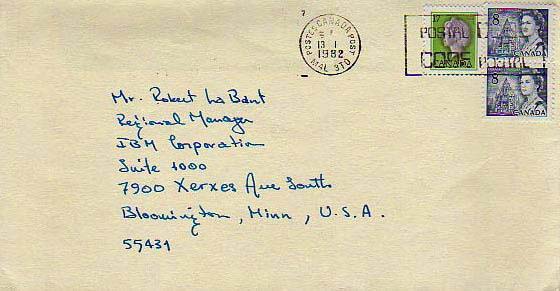 POSTES CANADA POST
13 I
1982
M4L 3T0
POSTAL CODE POSTAL
17
CANADA
8
CANADA
8
CANADA
Mr. Robert La Bant
Regional Manager
IBM Corporation
Suite 1000
7900 Xerxes Ave South
Bloomington, Minn, U.S.A.
55431